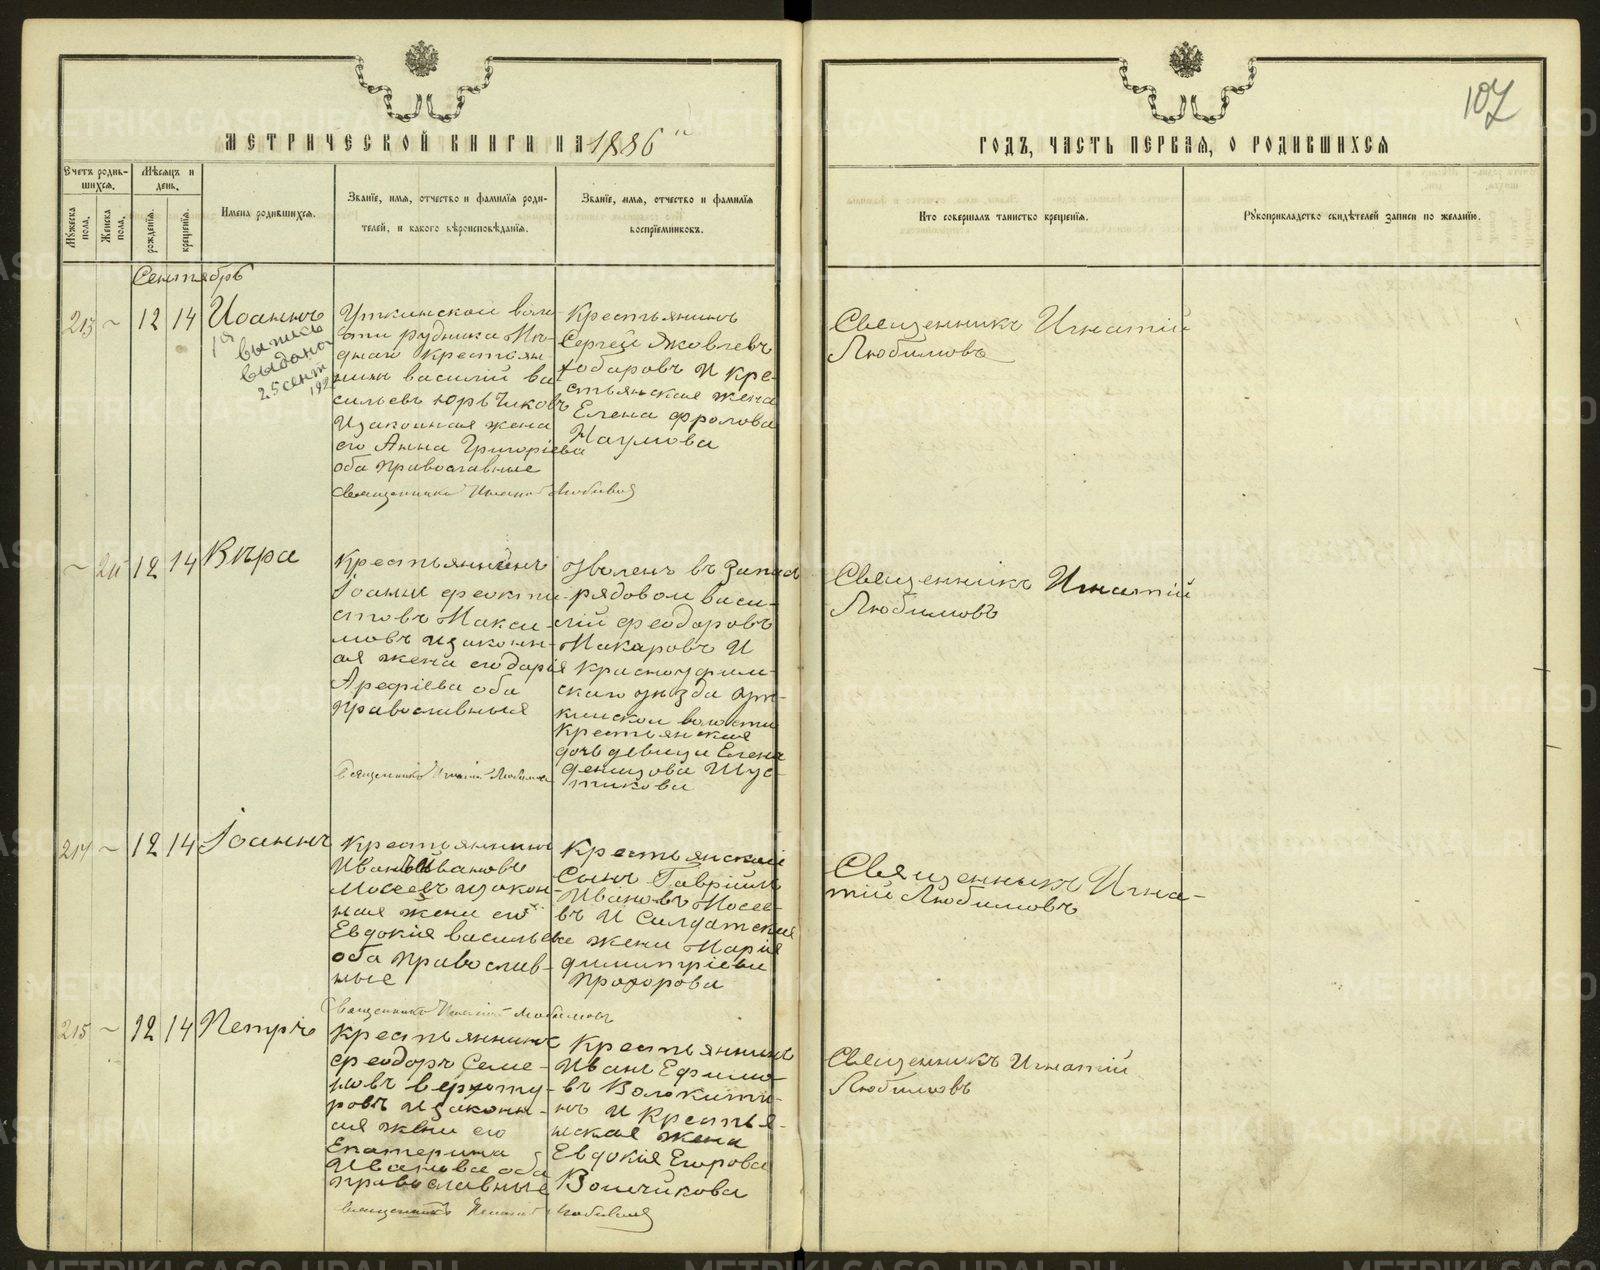 107
МЕТРИЧЕСКОЙ КНИГИ НА 1886
ГОДЪ, ЧАСТЬ ПЕРВАЯ, О РОДИВШИХСЯ
Счетъ родив-
шихся.
Мужеска пола.
Женска пола.
Мѣсяцъ и
день.
рожденія.
крещенія.
Имена родившихся.
Званіе, имя, отчество и фамилія роди-
телей, и какого вѣроисповѣданія.
Званіе, имя, отчество и фамилія
воспріемниковъ.
Кто совершалъ таинство крещенія.
Рукоприкладство свидѣтелей записи по желанію.
Сентябрь
213 ~ 12 14 Иоаннъ
выпись
выдана
25 сент
Уткинской воло
сти рудника
днаго крестьян
нинъ василій ва
сильевъ Юрьчиковъ
Изаконная жена
его Анна Григоріева
оба православные
Священникъ Игнатій Любимов
Крестьянинъ
Сергей Яковлевъ
И кре-
стьянская жена
Елена фролова
Наумова
Священникъ Игнатій
Любимовъ
~ 12 14 Вѣра
Крестьянинъ
Іоаннъ феокти-
стовъ Макси-
мовъ изаконн-
ая жена его дарія
Арефіева оба
православныя
Священникъ Игнатій Любимов
Уволенъ въ запасъ
рядовой васи-
лій феодоровъ
Макаровъ И
красноуфим-
скаго уѣзда Ут-
кинской волости
крестьянская
дочь девица Елена
денизова Шус-
тикова
Священникъ Игнатій
Любимовъ
214 ~ 12 14 Іоаннъ
крестьянинъ
Иванъ Ивановъ
Мосеевъ изакон-
ная жена его
Евдокия васильева
оба православ-
ные
Священникъ Игнатій Любимовъ
Крестьянской
Сынъ Гавріилъ
Ивановъ Мосее-
въ И Салдатская
жена Марія
димитріева
Прохорова
Священникъ Игна-
тій Любимовъ
215 ~ 12 14 Петръ
крестьянинъ
феодоръ Семе-
новъ верхоту-
ровъ изаконн-
ая жена его
Екатерина
Иванова оба
православные
Священникъ Игнатій Любимов
Крестьянинъ
Иванъ Ефимо-
въ Волокити-
нъ И Крестья-
нская жена
Евдокія Егорова
Вончикова
Священникъ Игнатій
Любимовъ
METRIKI.GASO-URAL.RU